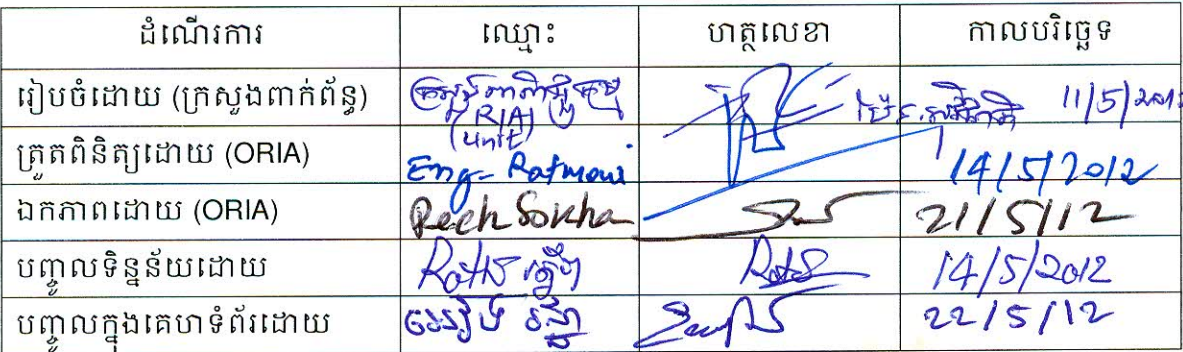 ដំណើរការ ឈ្មោះ ហត្ថលេខា កាលបរិច្ឆេទ
រៀបចំដោយ (ក្រសួងពាក់ព័ន្ធ) ក្រសួងពាណិជ្ជកម្ម 11/5/2012
(RIA Unit)
ត្រួតពិនិត្យដោយ (ORIA) Eng- Ratmoni 14/5/2012
ឯកភាពដោយ (ORIA) Pech Sokha 21/5/12
បញ្ចូលទិន្នន័យដោយ 14/5/2012
បញ្ចូលក្នុងគេហទំព័រដោយ 22/5/12